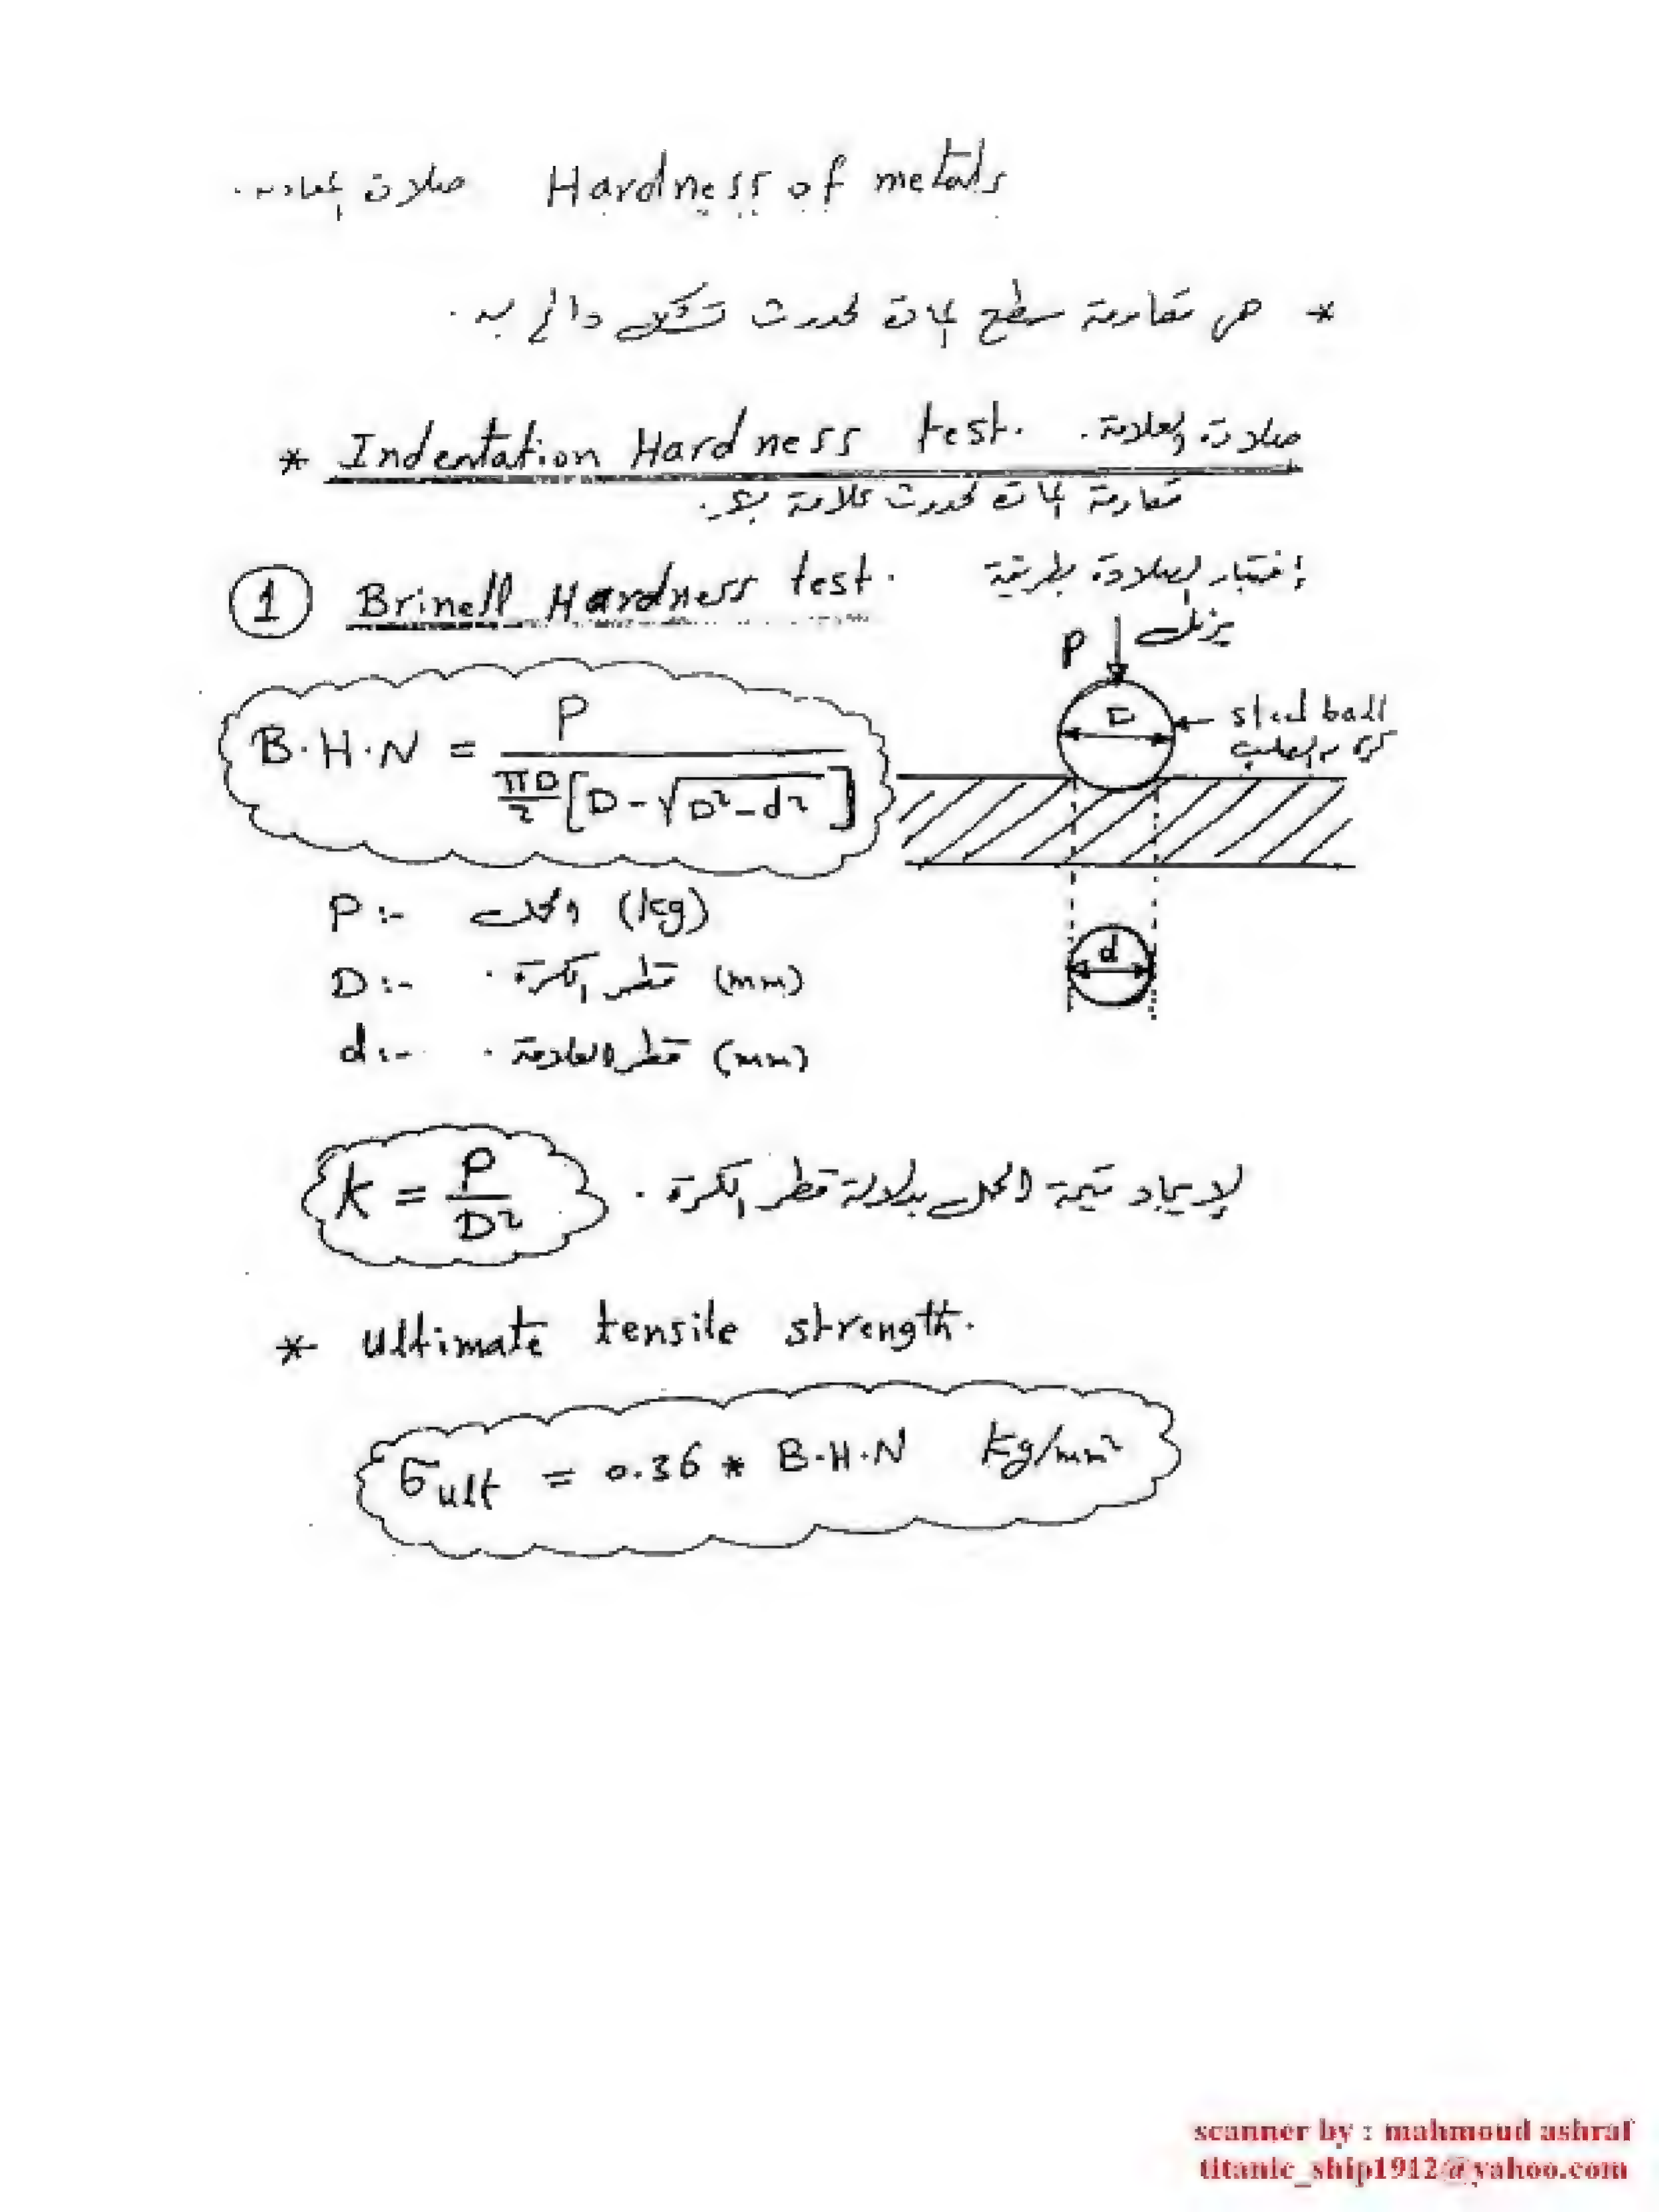 Hardness of metals صلادة المعادن.
* هى مقاومة سطح المادة لحدوث تشكل دائم به.
* Indentation Hardness test. صلادة العلامة.
مقاومة المادة لحدوث علامة بها.
① Brinell Hardness test. إختبار الصلادة بطريقة
برنل
P
D
steel ball
كرة من الصلب
B.H.N = P / (πD/2 [D - √(D² - d²)])
P :- الحمل (kg)
D :- قطر الكرة. (mm)
d :- قطر العلامة. (mm)
d
K = P / D² لإيجاد قيمة الحمل بدلالة قطر الكرة.
* Ultimate tensile strength.
σult = 0.36 * B.H.N kg/mm²
scanner by : mahmoud ashraf
titanic_ship1912@yahoo.com